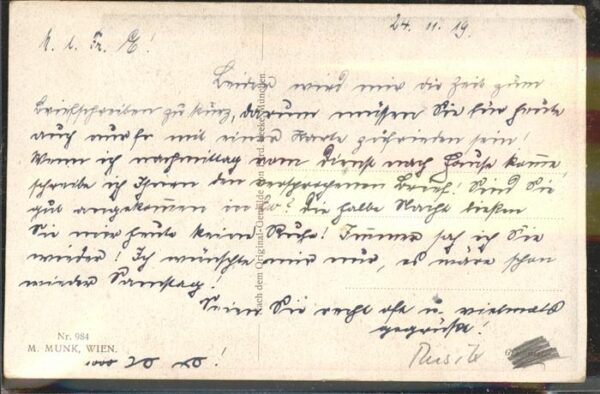 24. 11. 19.
M. l. Fr. E!
Leider wird mir die Zeit zum
Briefschreiben zu kurz, darum müssen Sie für heute
auch nur mit einer Karte zufrieden sein!
Wenn ich nachmittag vom Dienst nach Hause komme,
schreibe ich Ihnen den versprochenen Brief! Sind Sie
gut angekommen in? Die halbe Nacht ließen
Sie mir heute keine Ruhe! Immer sah ich Sie
wieder! Ich wünschte mir nur, es wäre schon
wieder Samstag!
Seien Sie recht oft u. vielmals
gegrüßt!
Nach dem Original-Gemälde von
München
Nr. 984
M. MUNK, WIEN.